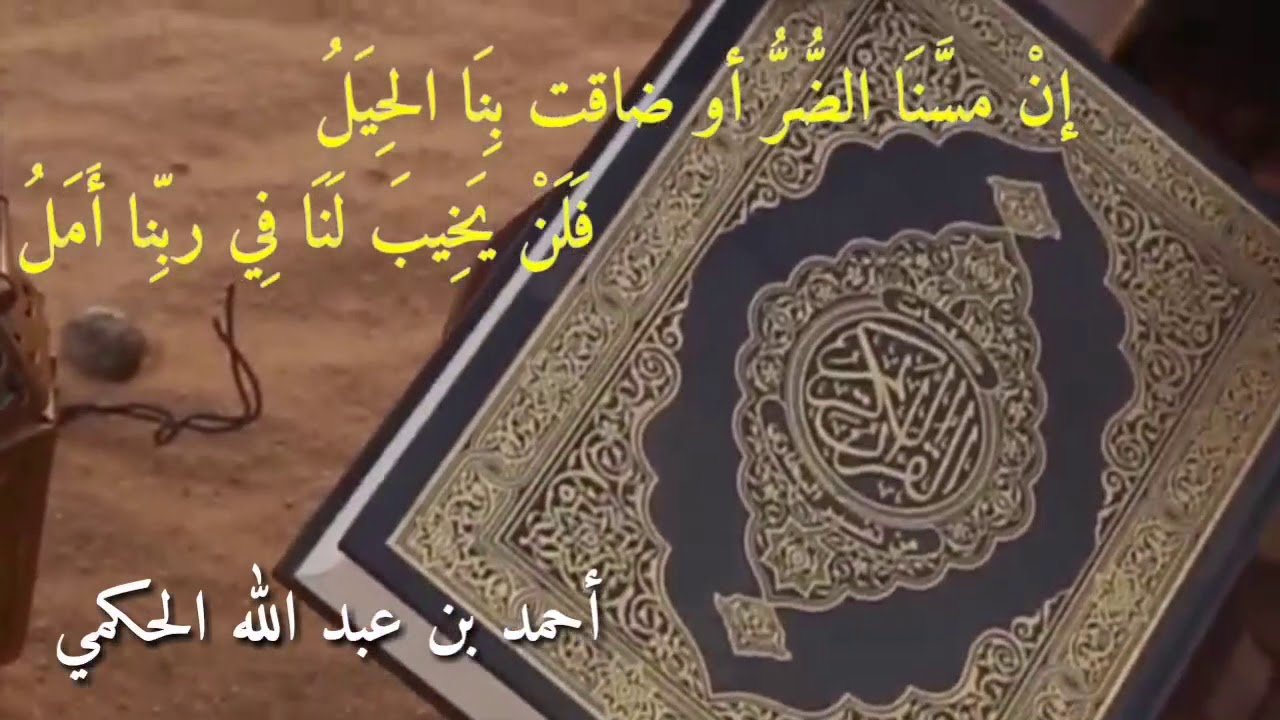 إنْ مسَّنَا الضُّرُّ أو ضاقت بِنَا الحِيَلُ
فَلَنْ يَخِيبَ لَنَا فِي ربِّنِا أَمَلُ
القرآن الكريم
أحمد بن عبد الله الحكمي